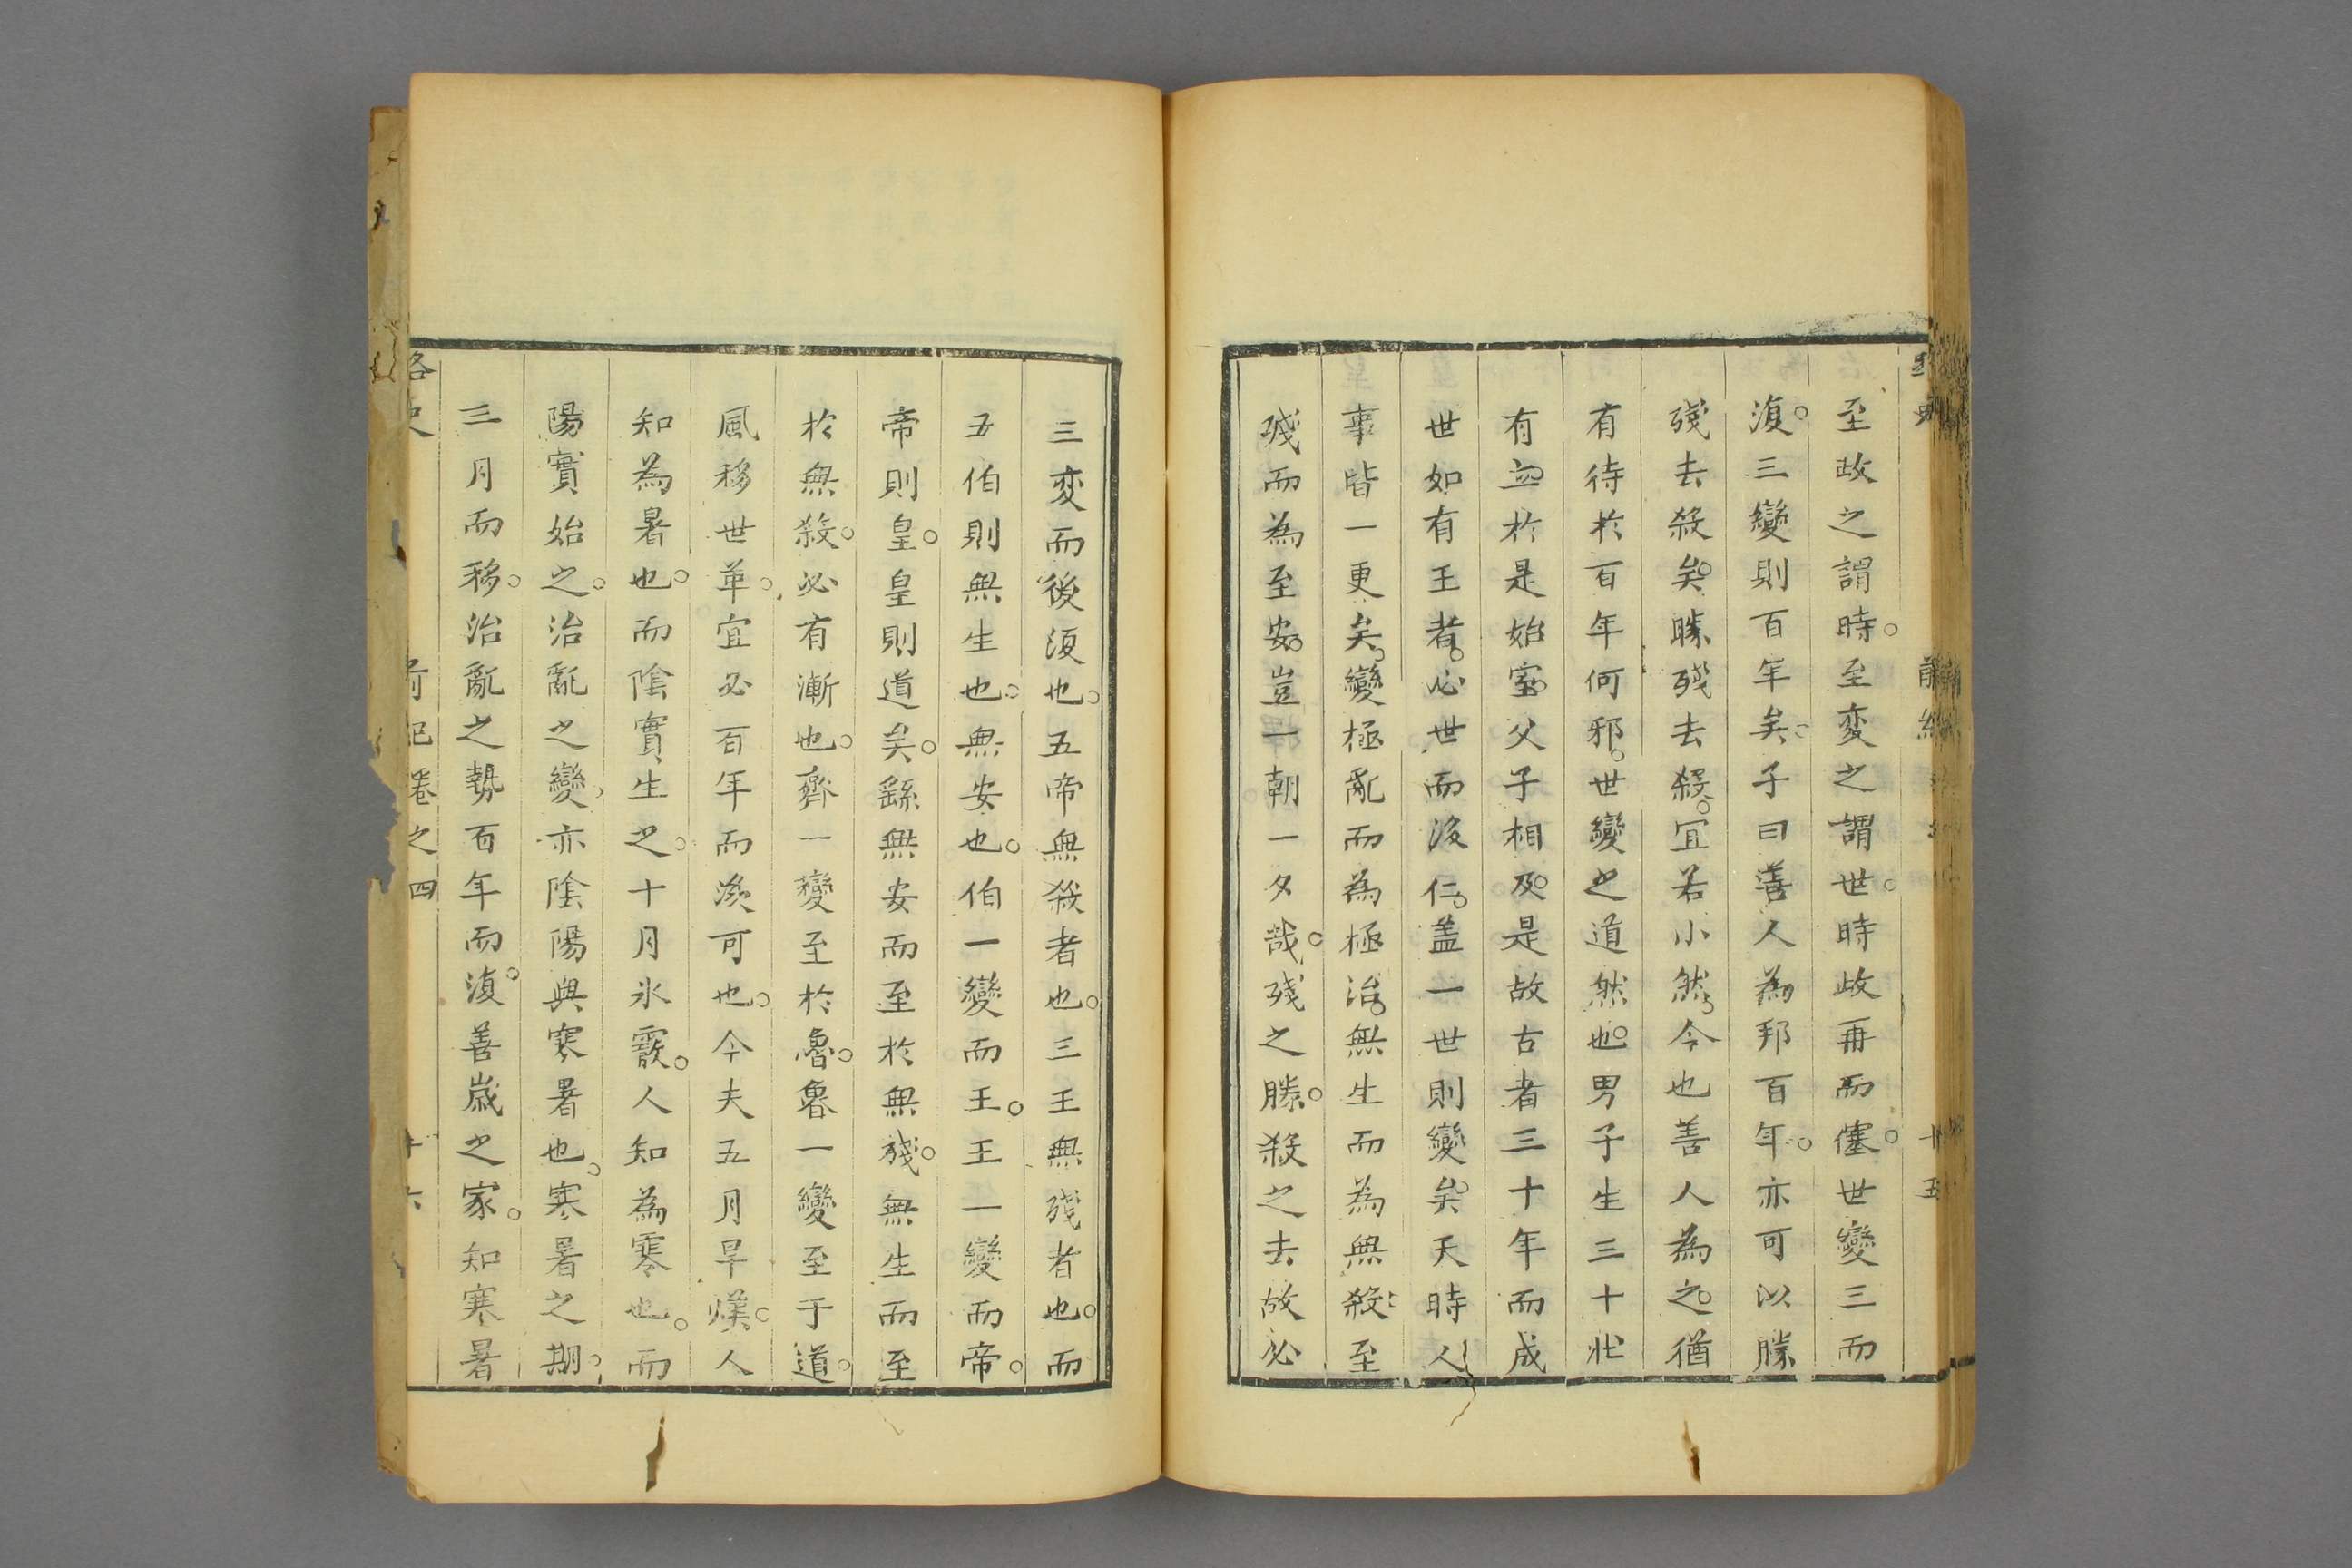 至故之謂時至変之謂世時故再而儘世變三而
復三變則百年矣子曰善人為邦百年亦可以勝
殘去殺矣勝殘去殺宜若小然今也善人為之猶
有待於百年何邪世變之道然也男子生三十壯
有立於是始室父子相及是故古者三十年而成
世如有王者必世而後仁盖一世則變矣天時人
事皆一更矣變極亂而為極治無生而為無殺至
殘而為至安豈一朝一夕哉殘之勝殺之去故必
三変而後復也五帝無殺者也三王無殘者也而
五伯則無生也無安也伯一變而王王一變而帝
帝則皇皇則道矣繇無安而至於無殘無生而至
於無殺必有漸也齊一變至於魯魯一變至于道
風移世革宜必百年而後可也今夫五月旱熯人
知為暑也而陰實生之十月氷霰人知為寒也而
陽實始之治亂之變亦陰陽與寒暑也寒暑之期
三月而移治亂之勢百年而復善歲之家知寒暑
路史
前紀卷之四
十六